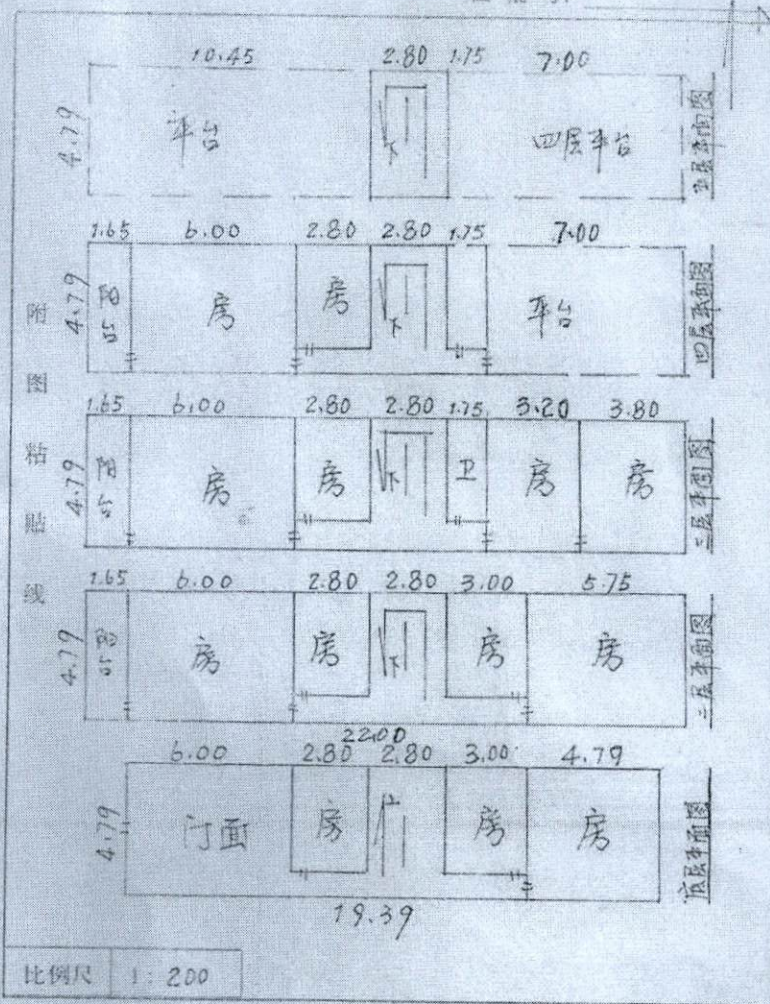 10.45 2.80 1.75 7.00
4.79 平台 下 四层平台 平面图
1.65 6.00 2.80 2.80 1.75 7.00
4.79 阳台 房 房 下 平台 四层平面图
1.65 6.00 2.80 2.80 1.75 3.20 3.80
4.79 阳台 房 房 下 卫 房 房 三层平面图
1.65 6.00 2.80 2.80 3.00 5.75
4.79 阳台 房 房 下 房 房 二层平面图
22.00
6.00 2.80 2.80 3.00 4.79
4.79 门面 房 上 房 房 底层平面图
19.39
附图粘贴线
比例尺 1:200